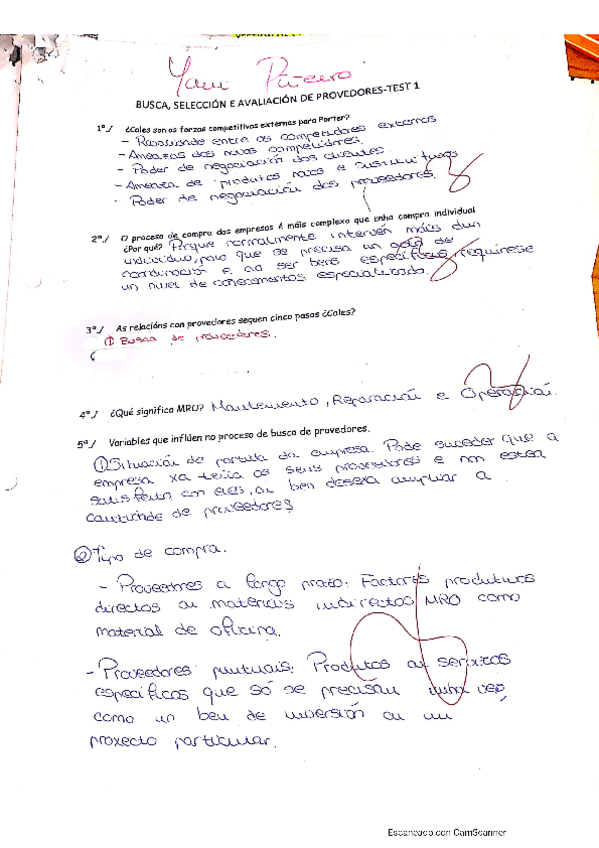 Yani Piñeiro
BUSCA, SELECCIÓN E AVALIACIÓN DE PROVEDORES-TEST 1
1ª./ ¿Cales son as forzas competitivas externas para Porter?
- Rivalidade entre os competidores externos
- Amenazas dos novos competidores.
- Poder de negociación dos clientes.
- Amenaza de produtos novos e sustitutivos
- Poder de negociación dos proveedores.
2ª./ O proceso de compra das empresas é máis complexo que unha compra individual
¿Por qué? Porque normalmente intervén máis dun
individuo, polo que se precisa un grao de
coordinación e ao ser bens específicos requírese
un nivel de coñecementos especializado.
3ª./ As relacións con provedores sequen cinco pasos ¿Cales?
① Busca de provedores.
4ª./ ¿Qué significa MRO? Mantemento, Reparación e Operación.
5ª./ Variables que inflúen no proceso de busca de provedores.
① Situación de partida da empresa. Pode suceder que a
empresa xa teña os seus proveedores e non estea
satisfeita con eles, ou ben desexa ampliar a
cantidade de proveedores
② Tipo de compra.
- Proveedores a longo prazo: Factores produtivos
directos ou materiais indirectos MRO como
material de oficina.
- Proveedores puntuais: Produtos ou servizos
específicos que só se precisan unha vez,
como un ben de inversión ou un
proxecto particular.
Escaneado con CamScanner